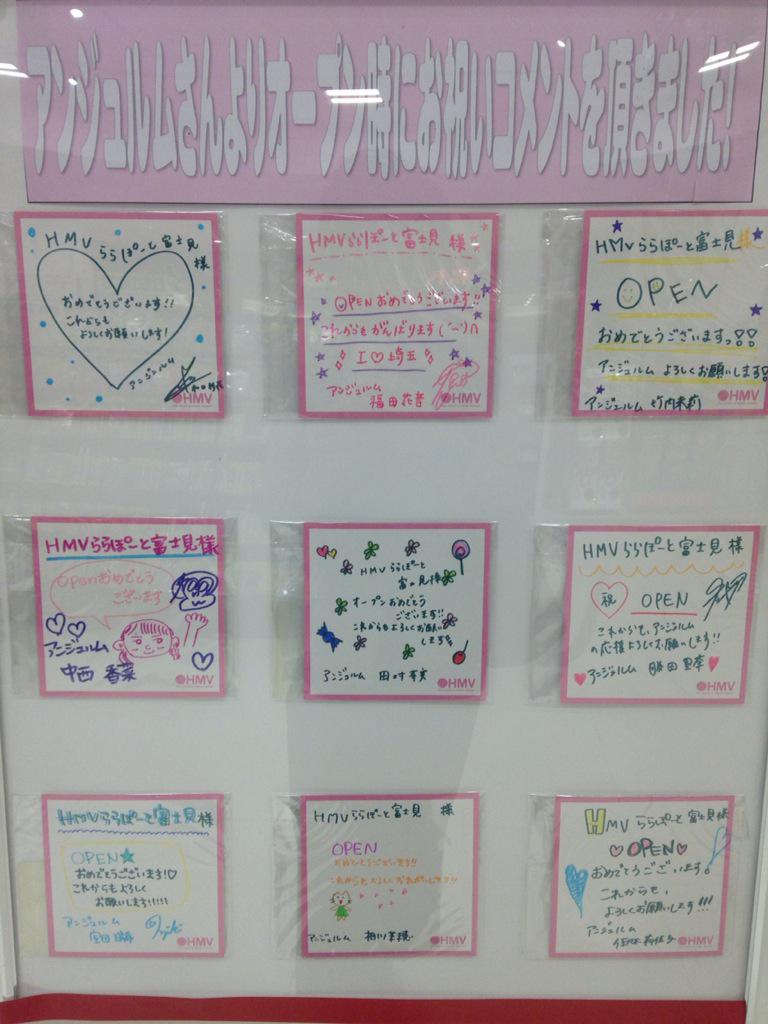 アンジュルムさんよりオープン時にお祝いコメントを頂きました!
HMVららぽーと富士見様
おめでとうございます!!
これからも
よろしくお願いします!
アンジュルム
HMV
HMVららぽーと富士見 様
OPENおめでとうございます!!
これからもがんばります
I♡埼玉
アンジュルム
福田花音
HMV
HMVららぽーと富士見様
OPEN
おめでとうございますっ!!
アンジュルム よろしくお願いします!
アンジュルム 竹内朱莉
HMV
HMVららぽーと富士見様
Openおめでとう
ございます
アンジュルム
中西 香菜
HMV
HMV ららぽーと
富士見様
オープンおめでとう
ございます!!
これからもよろしくお願い
します
アンジュルム 田村芽実
HMV
HMVららぽーと富士見 様
祝 OPEN
これからも、アンジュルム
の応援よろしくお願いします!!
アンジュルム 勝田里奈
HMV
HMVららぽーと富士見様
OPEN★
おめでとうございます!♡
これからもよろしく
お願いします!!!!!
アンジュルム
室田瑞希
HMV
HMVららぽーと富士見 様
OPEN
おめでとうございます!!
これからもよろしくお願いします!!
アンジュルム 相川茉穂
HMV
HMV ららぽーと富士見 様
♡OPEN♡
おめでとうございます。
これからも、
よろしくお願いします!!!
アンジュルム
佐々木莉佳子
HMV